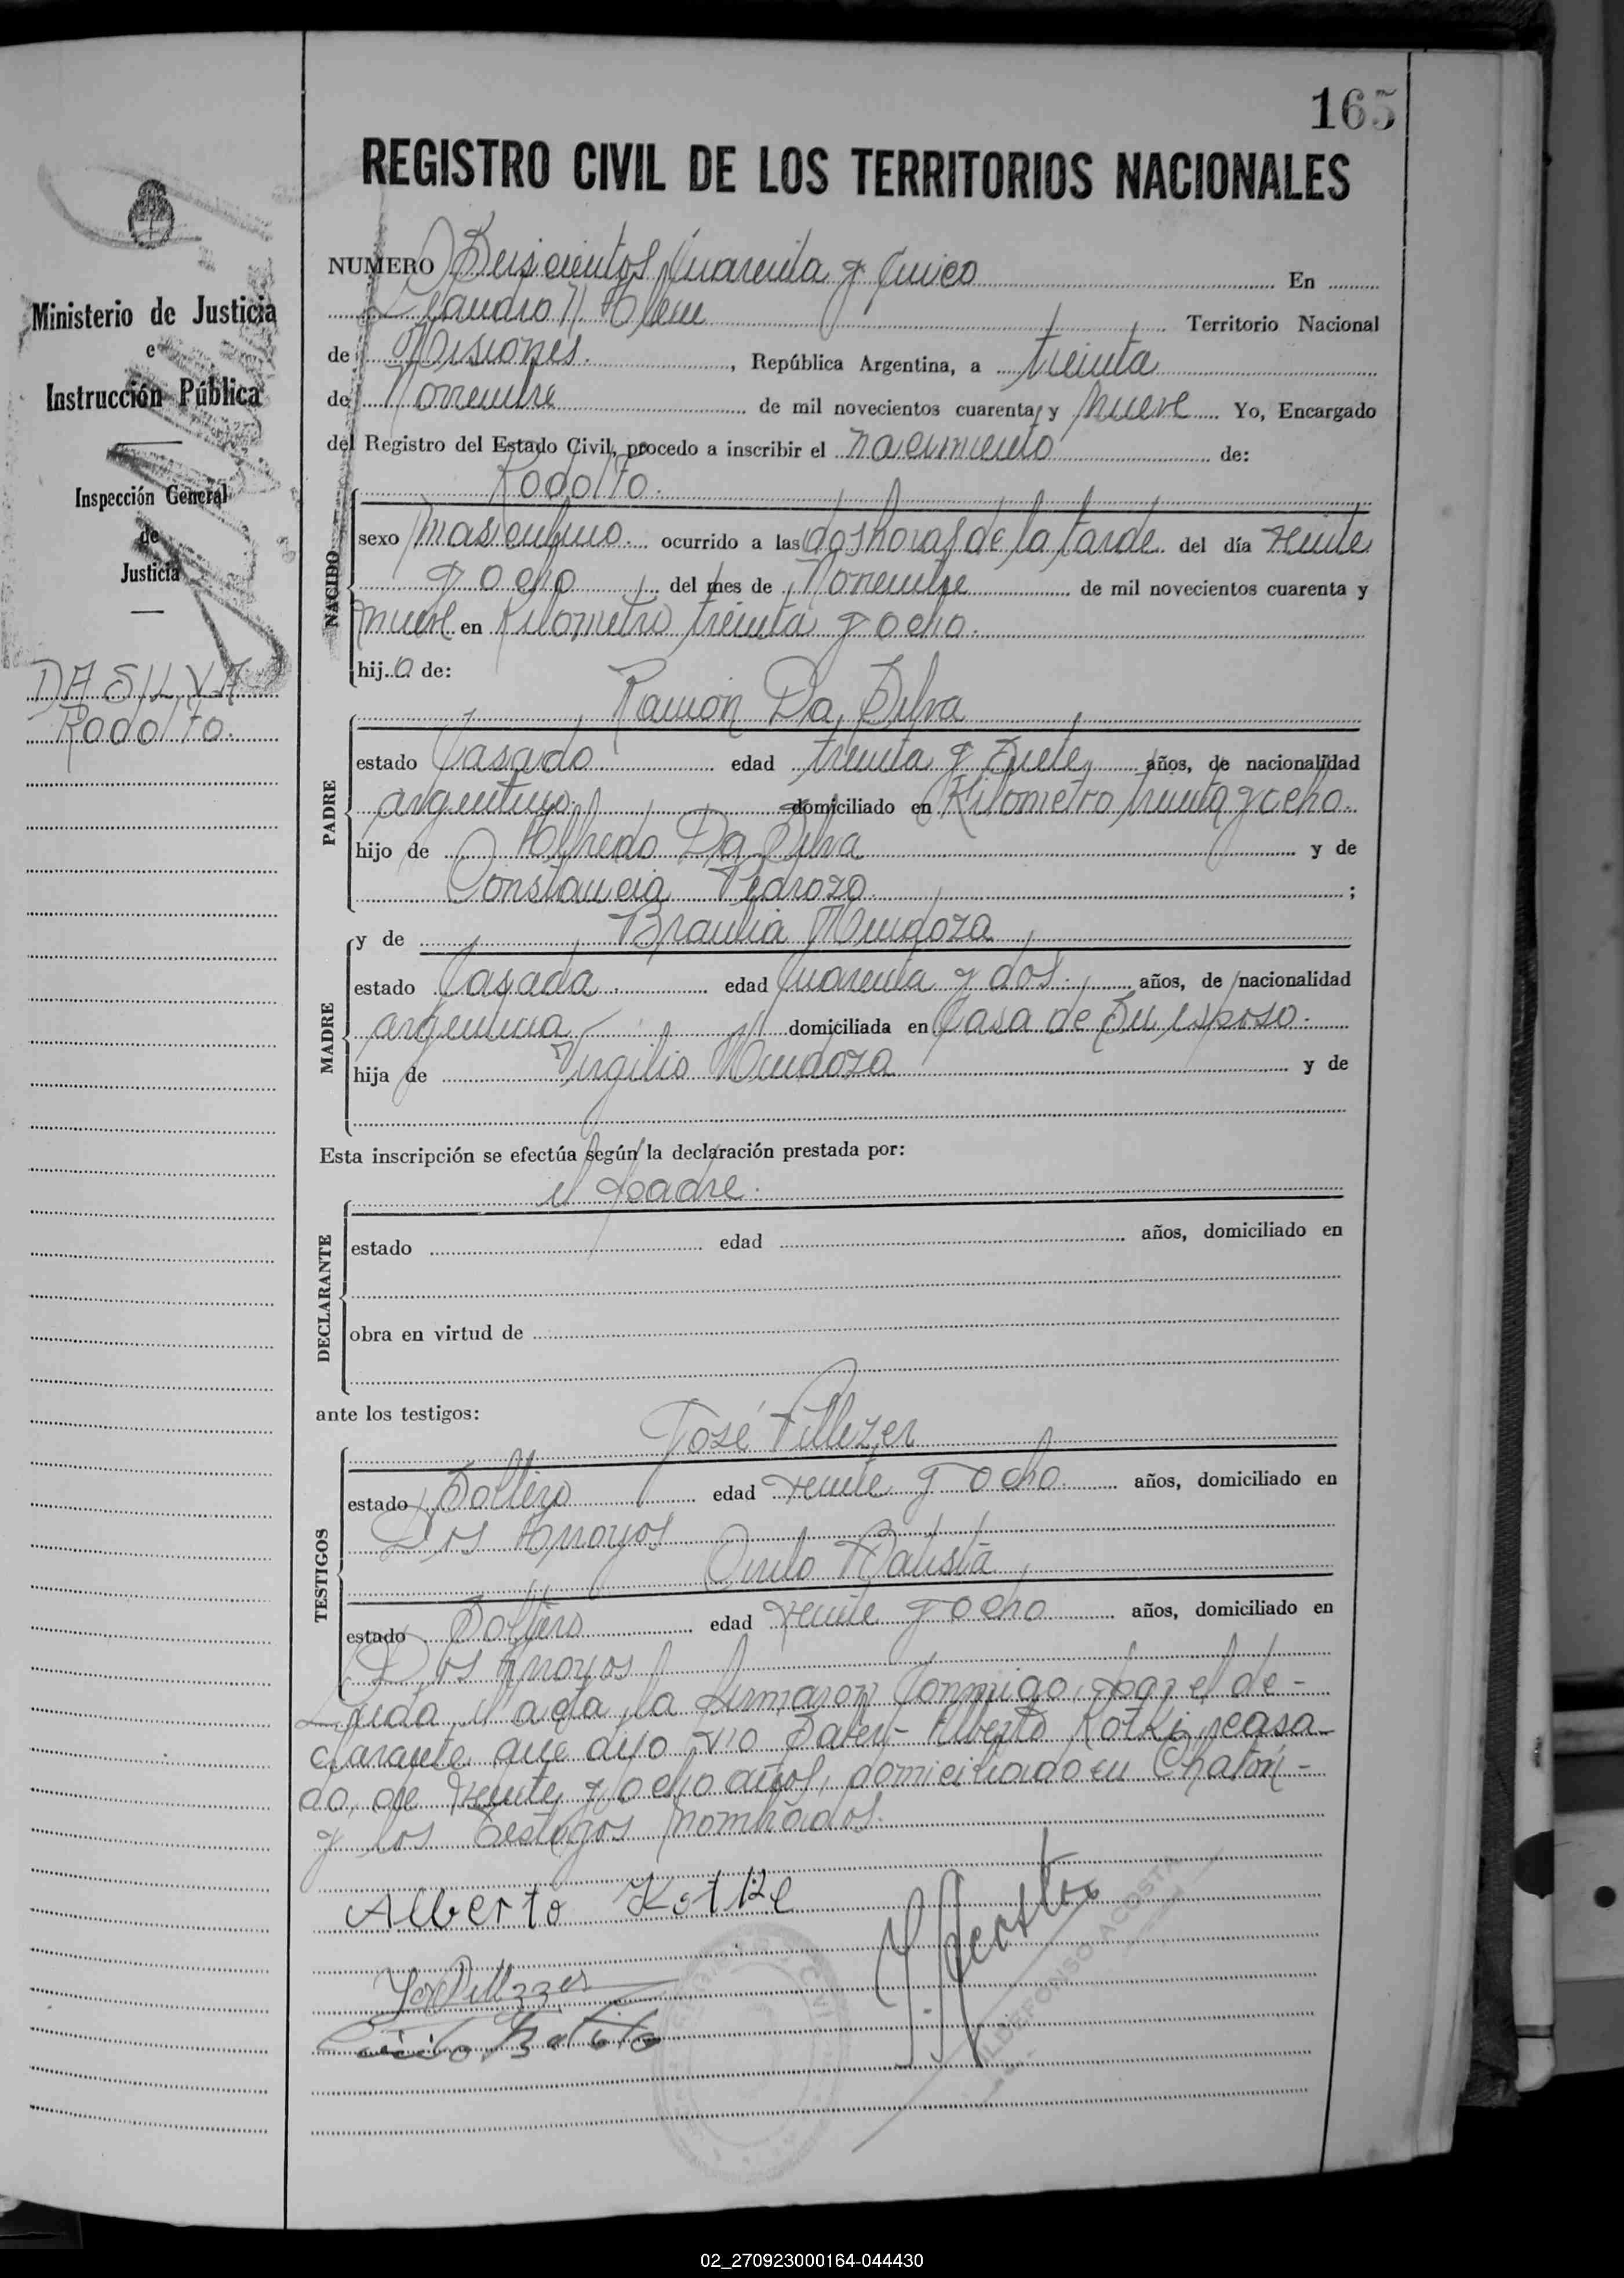 165
REGISTRO CIVIL DE LOS TERRITORIOS NACIONALES
Ministerio de Justicia
e
Instrucción Pública
Inspección General
de
Justicia
DA SILVA
Rodolfo.
NUMERO Seiscientos Cuarenta y Cinco En
Leandro N Alem Territorio Nacional
de Misiones. , República Argentina, a treinta
de Noviembre de mil novecientos cuarenta y nueve Yo, Encargado
del Registro del Estado Civil, procedo a inscribir el nacimiento de:
Rodolfo.
NACIDO
sexo masculino. ocurrido a las dos horas de la tarde del día veinte
y ocho del mes de Noviembre de mil novecientos cuarenta y
nueve en Kilometro treinta y ocho.
hijo de:
Ramón Da Silva
PADRE
estado Casado edad treinta y siete años, de nacionalidad
argentino domiciliado en Kilometro treinta y ocho.
hijo de Alfredo Da Silva y de
Constancia Pedrozo ;
y de Braulia Mendoza
MADRE
estado Casada. edad Cuarenta y dos. años, de nacionalidad
argentina domiciliada en Casa de Su esposo.
hija de Virgilio Mendoza y de
Esta inscripción se efectúa según la declaración prestada por:
el padre.
DECLARANTE
estado edad años, domiciliado en
obra en virtud de
ante los testigos:
José Pillezer
TESTIGOS
estado Soltero edad veinte y ocho años, domiciliado en
Dos Arroyos
Batista
estado Soltero edad veinte y ocho años, domiciliado en
Dos Arroyos
Leida el acta, la firmaron Conmigo, por el de-
clarante que dijo no Saber- Alberto casa-
do, de veinte y ocho años, domiciliado en
y los testigos nombrados.
Alberto
I. Acosta
ILDEFONSO ACOSTA
02_270923000164-044430